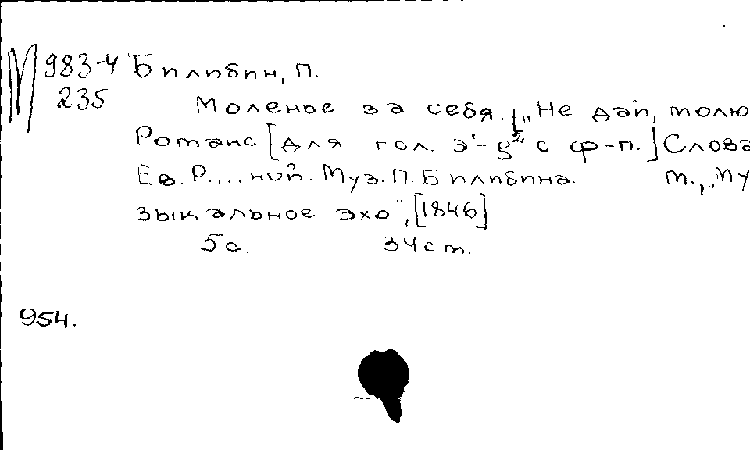 М 983-4 Билибин, П.
235
Моленое за себя. [„Не дай, молю
Романс [для гол. э¹-g² с ф-п.] Слова
Ев. Р....ной. Муз. П. Билибина. М., „Му
зыкальное эхо", [1846]
5 с. 34 см.
954.